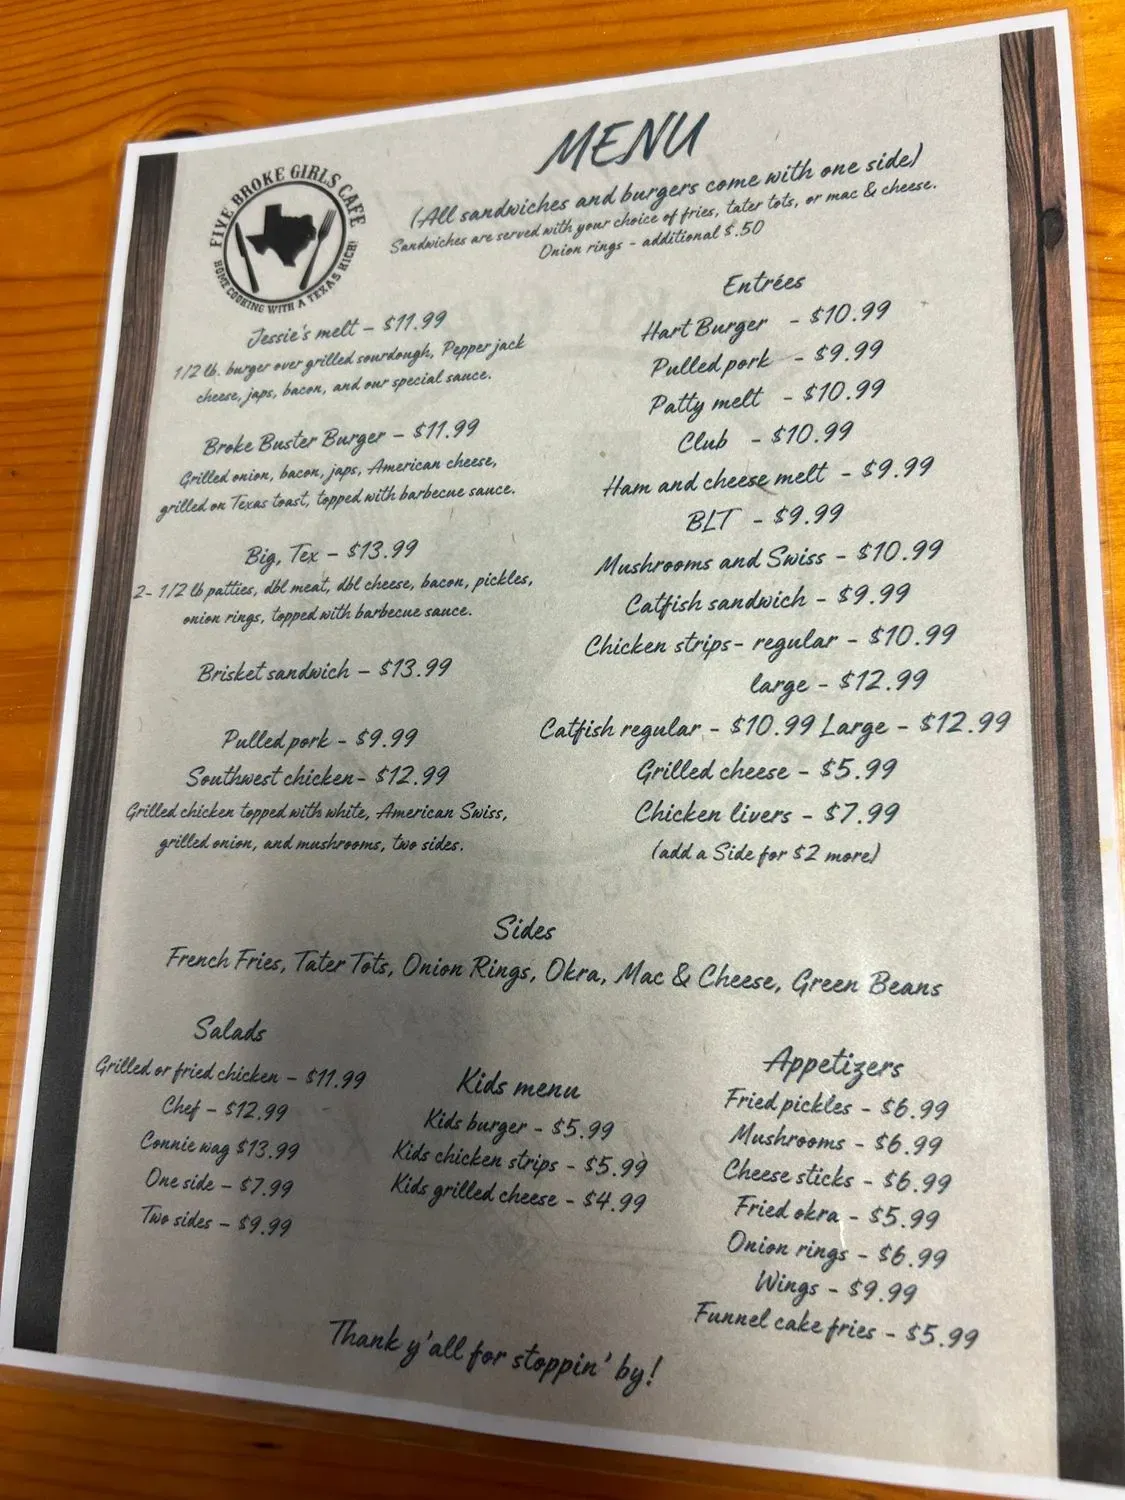 FIVE BROKE GIRLS CAFE
HOME COOKING WITH A TEXAS KICK!
MENU
(All sandwiches and burgers come with one side)
Sandwiches are served with your choice of fries, tater tots, or mac & cheese.
Onion rings - additional $.50
Jessie's melt – $11.99
1/2 lb. burger over grilled sourdough, Pepper jack
cheese, japs, bacon, and our special sauce.
Broke Buster Burger – $11.99
Grilled onion, bacon, japs, American cheese,
grilled on Texas toast, topped with barbecue sauce.
Big, Tex – $13.99
2- 1/2 lb patties, dbl meat, dbl cheese, bacon, pickles,
onion rings, topped with barbecue sauce.
Brisket sandwich – $13.99
Pulled pork - $9.99
Southwest chicken- $12.99
Grilled chicken topped with white, American Swiss,
grilled onion, and mushrooms, two sides.
Entrées
Hart Burger - $10.99
Pulled pork - $9.99
Patty melt - $10.99
Club - $10.99
Ham and cheese melt - $9.99
BLT - $9.99
Mushrooms and Swiss - $10.99
Catfish sandwich - $9.99
Chicken strips- regular - $10.99
large - $12.99
Catfish regular - $10.99 Large - $12.99
Grilled cheese - $5.99
Chicken livers - $7.99
(add a Side for $2 more)
Sides
French Fries, Tater Tots, Onion Rings, Okra, Mac & Cheese, Green Beans
Salads
Grilled or fried chicken – $11.99
Chef – $12.99
Connie wag $13.99
One side – $7.99
Two sides – $9.99
Kids menu
Kids burger - $5.99
Kids chicken strips - $5.99
Kids grilled cheese - $4.99
Appetizers
Fried pickles - $6.99
Mushrooms - $6.99
Cheese sticks - $6.99
Fried okra - $5.99
Onion rings - $6.99
Wings - $9.99
Funnel cake fries - $5.99
Thank y'all for stoppin' by!